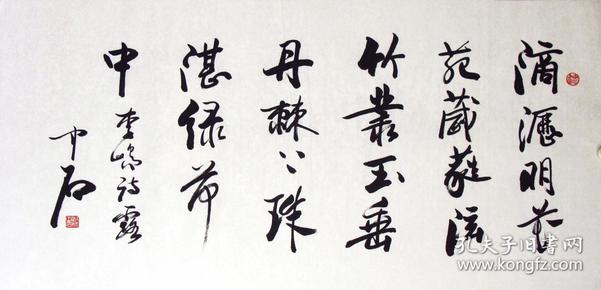 滴瀝明花
苑葳蕤泫
竹叢玉垂
丹棘上珠
湛緑荷
中 李嶠詩露
中石
孔夫子旧书网
www.kongfz.com